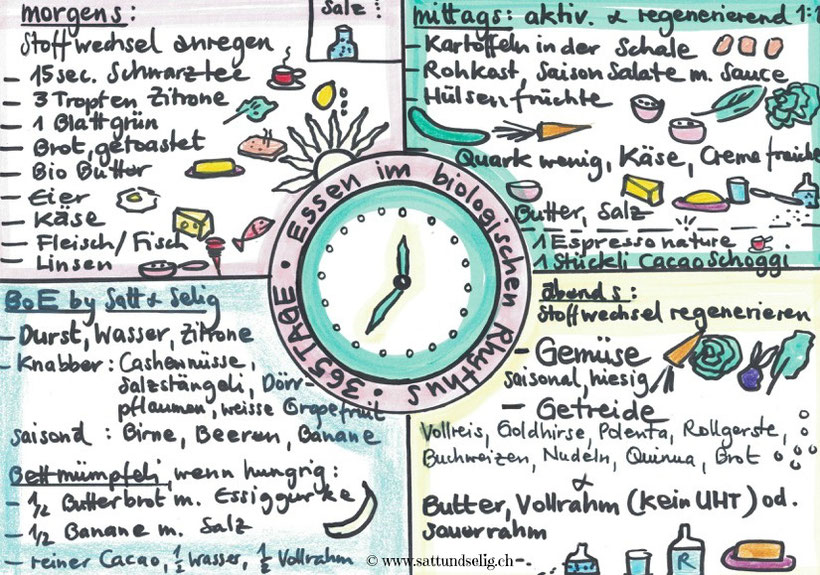 morgens:
Stoffwechsel anregen
– 15 sec. Schwarztee
– 3 Tropfen Zitrone
– 1 Blattgrün
– Brot, getoastet
– Bio Butter
– Eier
– Käse
– Fleisch/Fisch
– Linsen
Salz
mittags: aktiv. & regenerierend
– Kartoffeln in der Schale
– Rohkost, Saison Salate m. Sauce
– Hülsenfrüchte
Quark wenig, Käse, Creme fraiche
Butter, Salz
1 Espresso nature
1 Stückli Cacao Schoggi
365 TAGE · Essen im biologischen Rhythus ·
BoE by Satt & Selig
– Durst, Wasser, Zitrone
– Knabber: Cashewnüsse,
Salzstängeli, Dörr-
pflaumen, weisse Grapefruit
saisonal: Birne, Beeren, Banane
Bettmümpfeli, wenn hungrig:
– 1/2 Butterbrot m. Essiggurke
– 1/2 Banane m. Salz
– reiner Cacao, 1/2 Wasser, 1/2 Vollrahm
abends:
Stoffwechsel regenerieren
– Gemüse
saisonal, hiesig
– Getreide
Vollreis, Goldhirse, Polenta, Rollgerste,
Buchweizen, Nudeln, Quinua, Brot
&
Butter, Vollrahm (kein UHT) od.
Sauerrahm
R
© www.sattundselig.ch